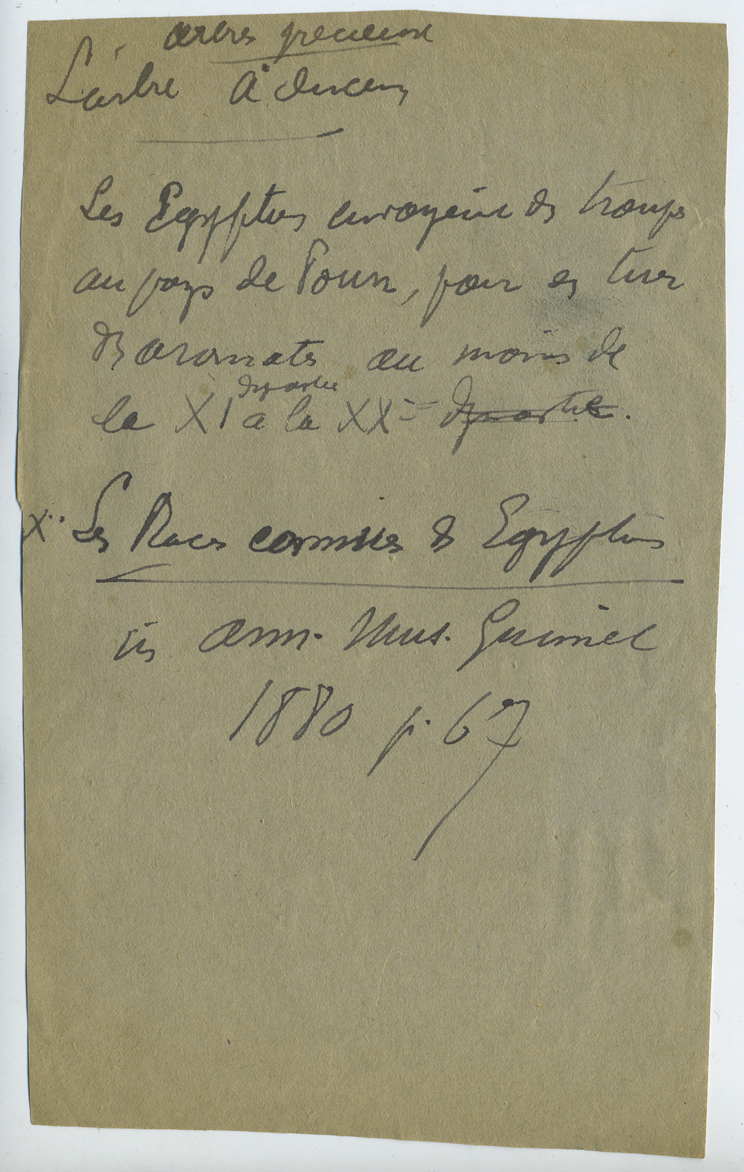 arbres précieux
L'arbre à encens
Les Egyptiens envoyaient des troupes
au pays de Poun, pour en tirer
des aromates au moins de
dynastie
la XI à la XXe dynastie.
X Les Races connues des Egyptiens
in ann. Mus. Guimet
1880 p. 67